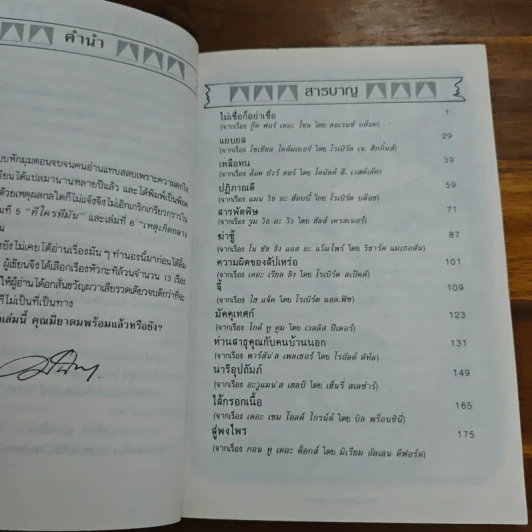 คำนำ
บบหักมุมตอนจบจนคนอ่านแทบสลบเพราะความตกใจ
ขียนได้แปลมานานหลายปีแล้ว และได้พิมพ์เป็นพ็อค
ด้วยเหตุผลกลใดก็ไม่แจ้งจึงไม่เอิกเกริกเกรียวกราวใน
มที่ 5 "ที่ใครที่มัน" และเล่มที่ 6 "เหตุเกิดกลาง
น
ยังไม่เคยได้อ่านเรื่องมัน ๆ ทำนองนี้มาก่อนได้ลิ้ม
ผู้เขียนจึงได้เลือกเรื่องหัวกะทิล้วนจำนวน 13 เรื่อง
ให้ผู้อ่านได้อกสั่นขวัญผวาเสียรวดเดียวจบดีกว่าที่จะ
ก็ไม่เป็นที่เป็นทาง
ล่มนี้ คุณมียาดมพร้อมแล้วหรือยัง?
สารบาญ
ไม่เชื่อก็อย่าเชื่อ 7
(จากเรื่อง กู๊ด ฟอร์ เดอะ โซล โดย ลอเรนซ์ บล็อค)
แยบยล 29
(จากเรื่อง โซเชียล ไคล์มเบอร์ โดย โรเบิร์ต เจ. ฮิกกิ้นส์)
เหลือทน 39
(จากเรื่อง ล็อค ยัวร์ ดอร์ โดย โดนัลด์ อี. เวสต์เล้ค)
ปฏิภาณดี 59
(จากเรื่อง แมน วิธ อะ ฮ้อบบี้ โดย โรเบิร์ต บล็อช)
สารพัดพิษ 71
(จากเรื่อง รูม วิธ อะ วิว โดย ฮัลส์ เดรสเนอร์)
ฆ่าชู้ 87
(จากเรื่อง โน ซัช ธิง แอส อะ แว้มไพร์ โดย ริชาร์ด แมเธอสัน)
ความผิดของสัปเหร่อ 101
(จากเรื่อง เดอะ เรียล ธิง โดย โรเบิร์ต สเปิคต์)
จี้ 109
(จากเรื่อง ไฮ แจ๊ค โดย โรเบิร์ต แอล.ฟิช)
มัคคุเทศก์ 123
(จากเรื่อง ไกด์ ทู ดูม โดย เวลลิส ปีเตอร์)
ท่านสาธุคุณกับคนบ้านนอก 131
(จากเรื่อง พาร์สัน'ส เพลเชอร์ โดย โรอัลด์ ดาห์ล)
นารีอุปถัมภ์ 149
(จากเรื่อง อะวูแมน'ส เฮลป์ โดย เฮ็นรี่ สเลซ่าร์)
ไส้กรอกเนื้อ 165
(จากเรื่อง เดอะ เซม โอลด์ ไกรน์ด์ โดย บิล พร็อนซินี่)
สู่พงไพร 175
(จากเรื่อง กอน ทู เดอะ ด็อกส์ โดย มิเรียม อัลเลน ดีฟอร์ด)